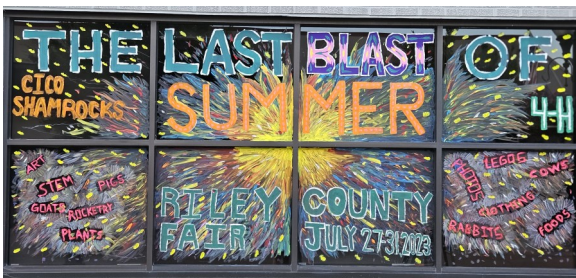 THE LAST BLAST OF
CICO
SHAMROCKS
SUMMER
4-H
ART
STEM
PIGS
GOATS
ROCKETRY
PLANTS
RILEY COUNTY
FAIR JULY 27-31 2023
PHOTOS
LEGOS
COWS
CLOTHING
RABBITS
FOODS